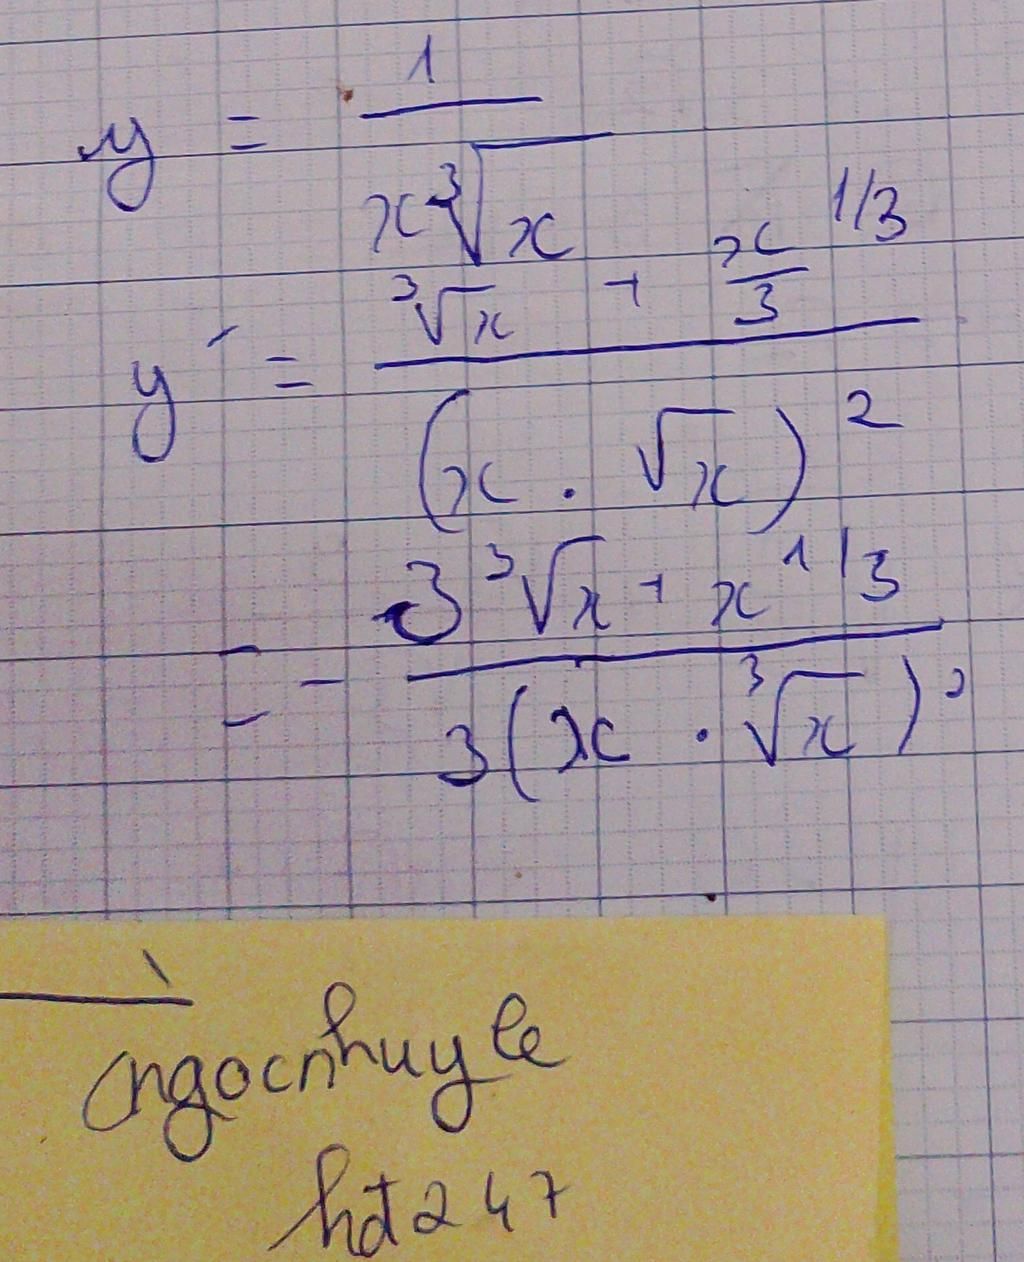 y = 1 / x∛x
y' = ∛x + x/3 ^1/3 / (x . √x)^2
= - 3∛x + x^1/3 / 3(x . ∛x)^2
ngocnhuyle
hd247